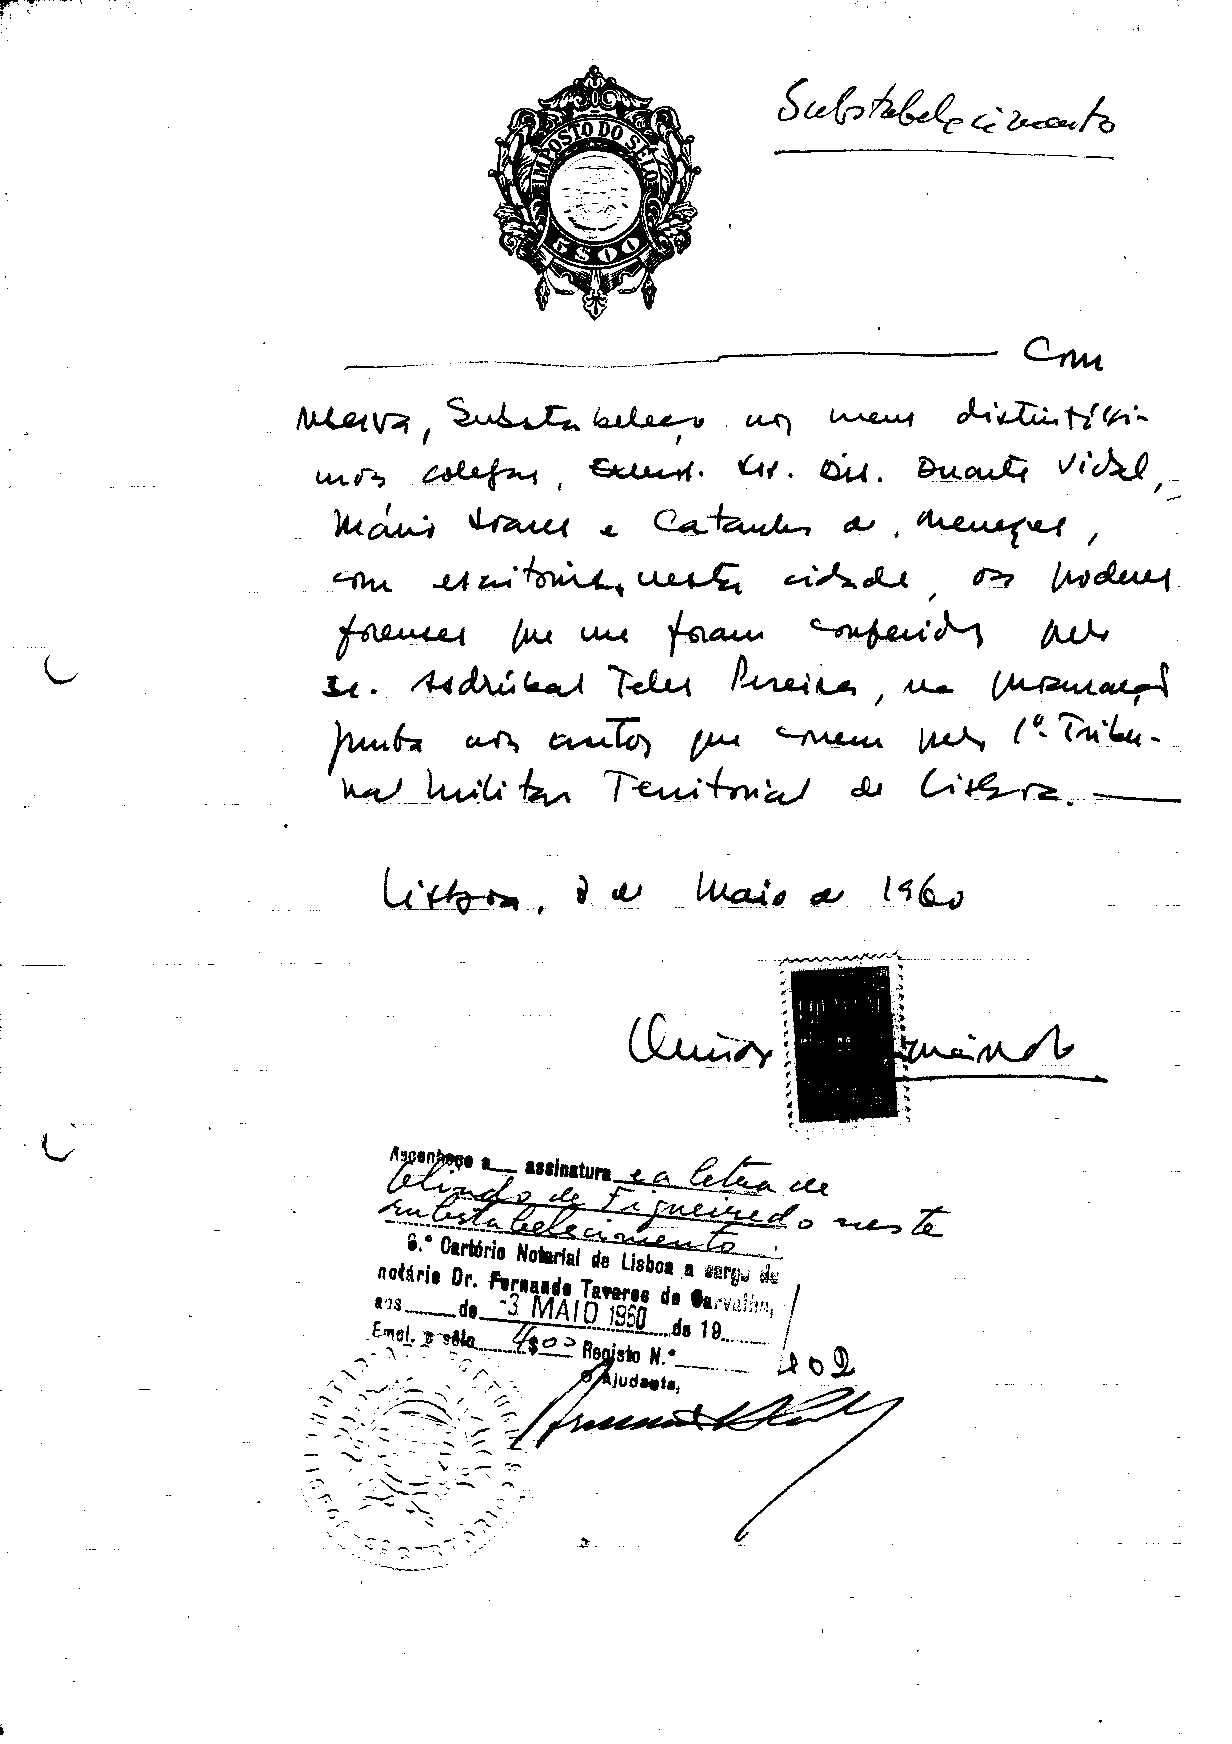 Substabelecimento
IMPOSTO DO SELO
5$00
Com
reserva, substabeleço nos meus distintíssi-
mos colegas, Exmos. Srs. Drs. Duarte Vidal,
Mário Soares e Catanho de Menezes,
com escritório, nesta cidade, os poderes
forenses que me foram conferidos pelo
Sr. Asdrúbal Teles Pereira, na procuração
junta aos autos que correm pelo 1º. Tribu-
nal Militar Territorial de Lisboa.
Lisboa, 3 de Maio de 1960
Reconheço a assinatura e a letra de
Olindo de Figueiredo neste
substabelecimento.
6.º Cartório Notarial de Lisboa a cargo do
notário Dr. Fernando Tavares de Carvalho,
aos de -3 MAIO 1960 de 19
Emol. e sêlo 4$00 Registo N.º 102
O Ajudante,